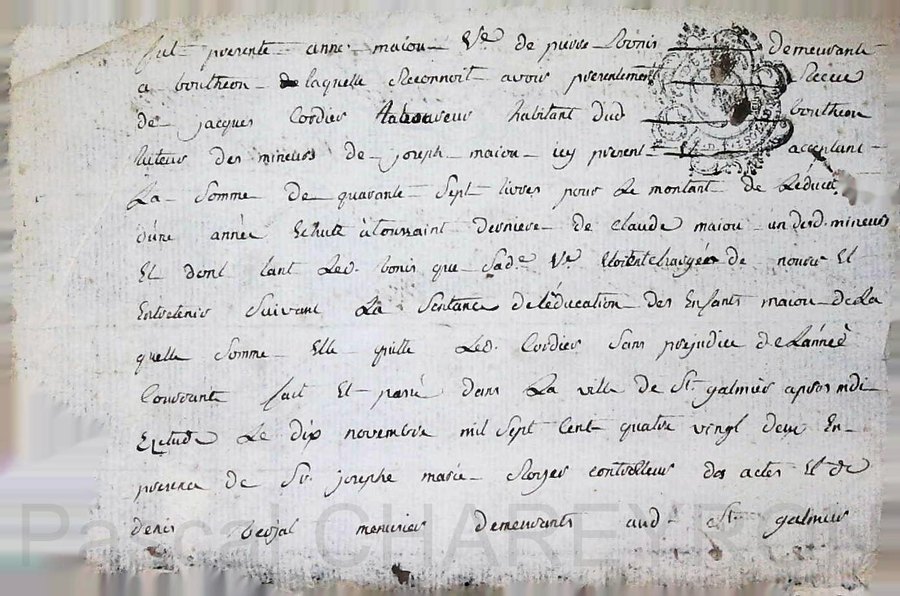 fut presente anne maiou Ve de pierre Bonis demeurante
a boutheon de laquelle Reconnoit avoir presentement Receu
de jacques Cordier Laboureur habitant dud boutheon
tuteur des mineurs de joseph maiou icy present acceptant
La Somme de quarante Sept livres pour Le montant de Leducat
d'une année Echute à toussaint derniere de Claude maiou un desd. mineurs
Et dont tant Led. bonis que Sade Ve Etoient chargés de nourir Et
Entretenir Suivant La Sentance de l'éducation des Enfants maiou de La
quelle Somme Elle quitte Led. Cordier Sans prejudice de L'année
Courrante fait Et passé dans La ville de St galmier apres midi
Etude Le dix novembre mil Sept Cent quatre vingt deux En
presence de Sr. josephe marie controlleur des actes Et de
denis menuisier demeurants aud St galmier
Pascal CHAREYRON